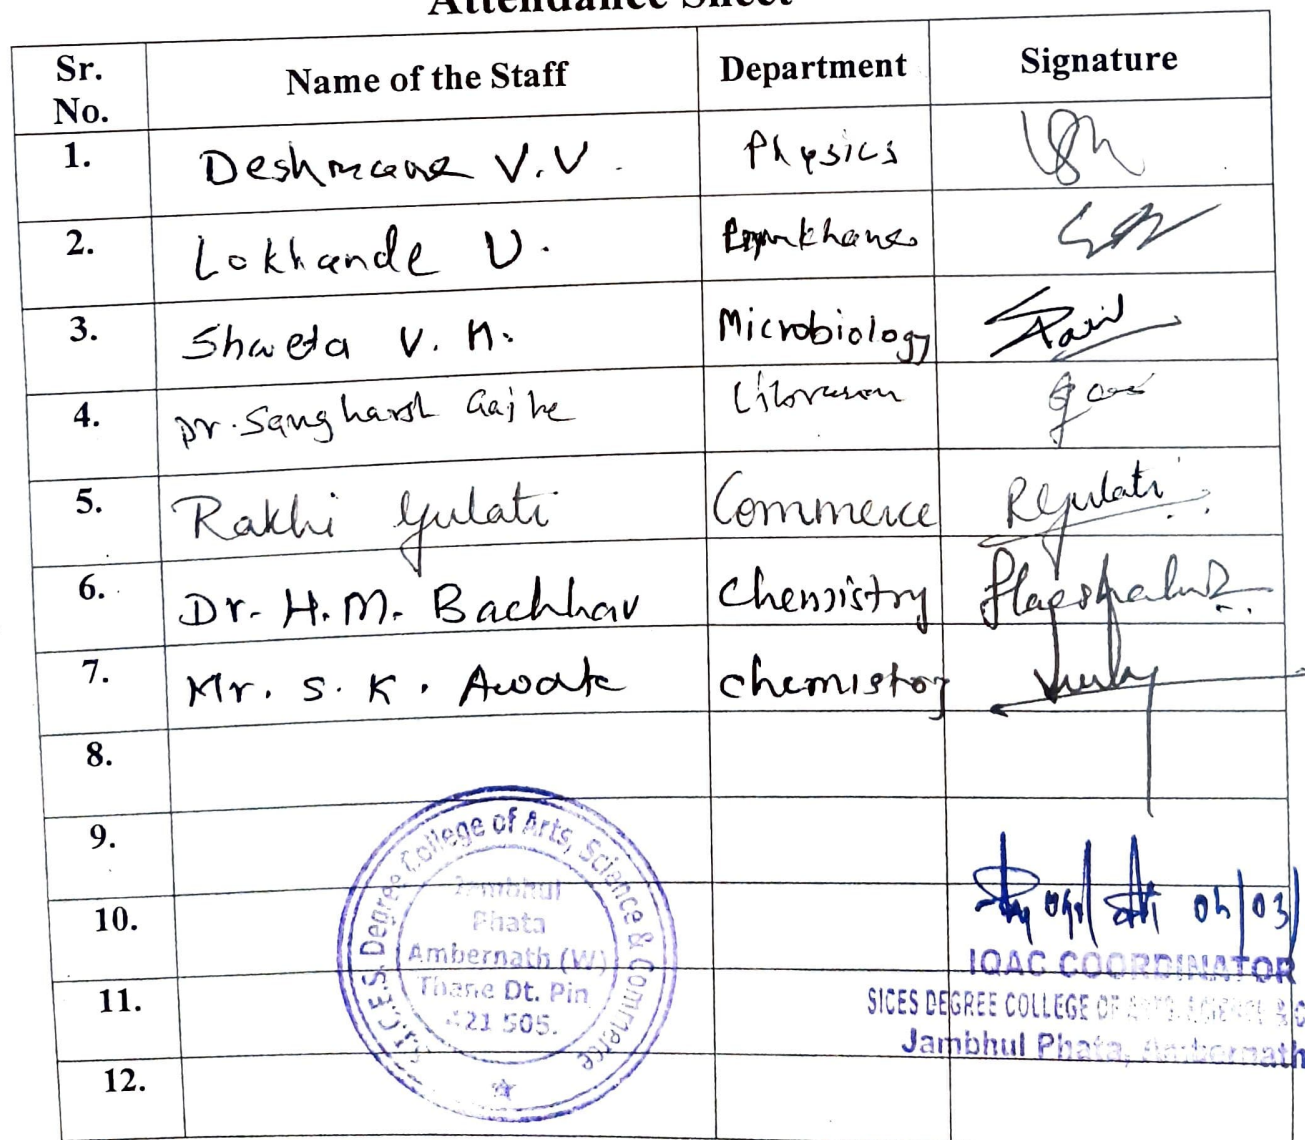 Attendance Sheet
Sr. No. Name of the Staff Department Signature
1. Deshmane V.V. Physics
2. Lokhande U.
3. Shweta V. n. Microbiology
4. Dr. Sangharsh Gajbe Librarian
5. Rakhi Gulati Commerce RGulati
6. Dr. H.M. Bachhav Chemistry
7. Mr. S. K. Awate chemistry
8.
9.
10.
11.
12.
S.I.C.E.S. Degree College of Arts, Science & Commerce
Jambhul
Phata
Ambernath (W)
Thane Dt. Pin
421 505.
IQAC COORDINATOR
SICES DEGREE COLLEGE OF ARTS, SCIENCE & C
Jambhul Phata, Ambernath